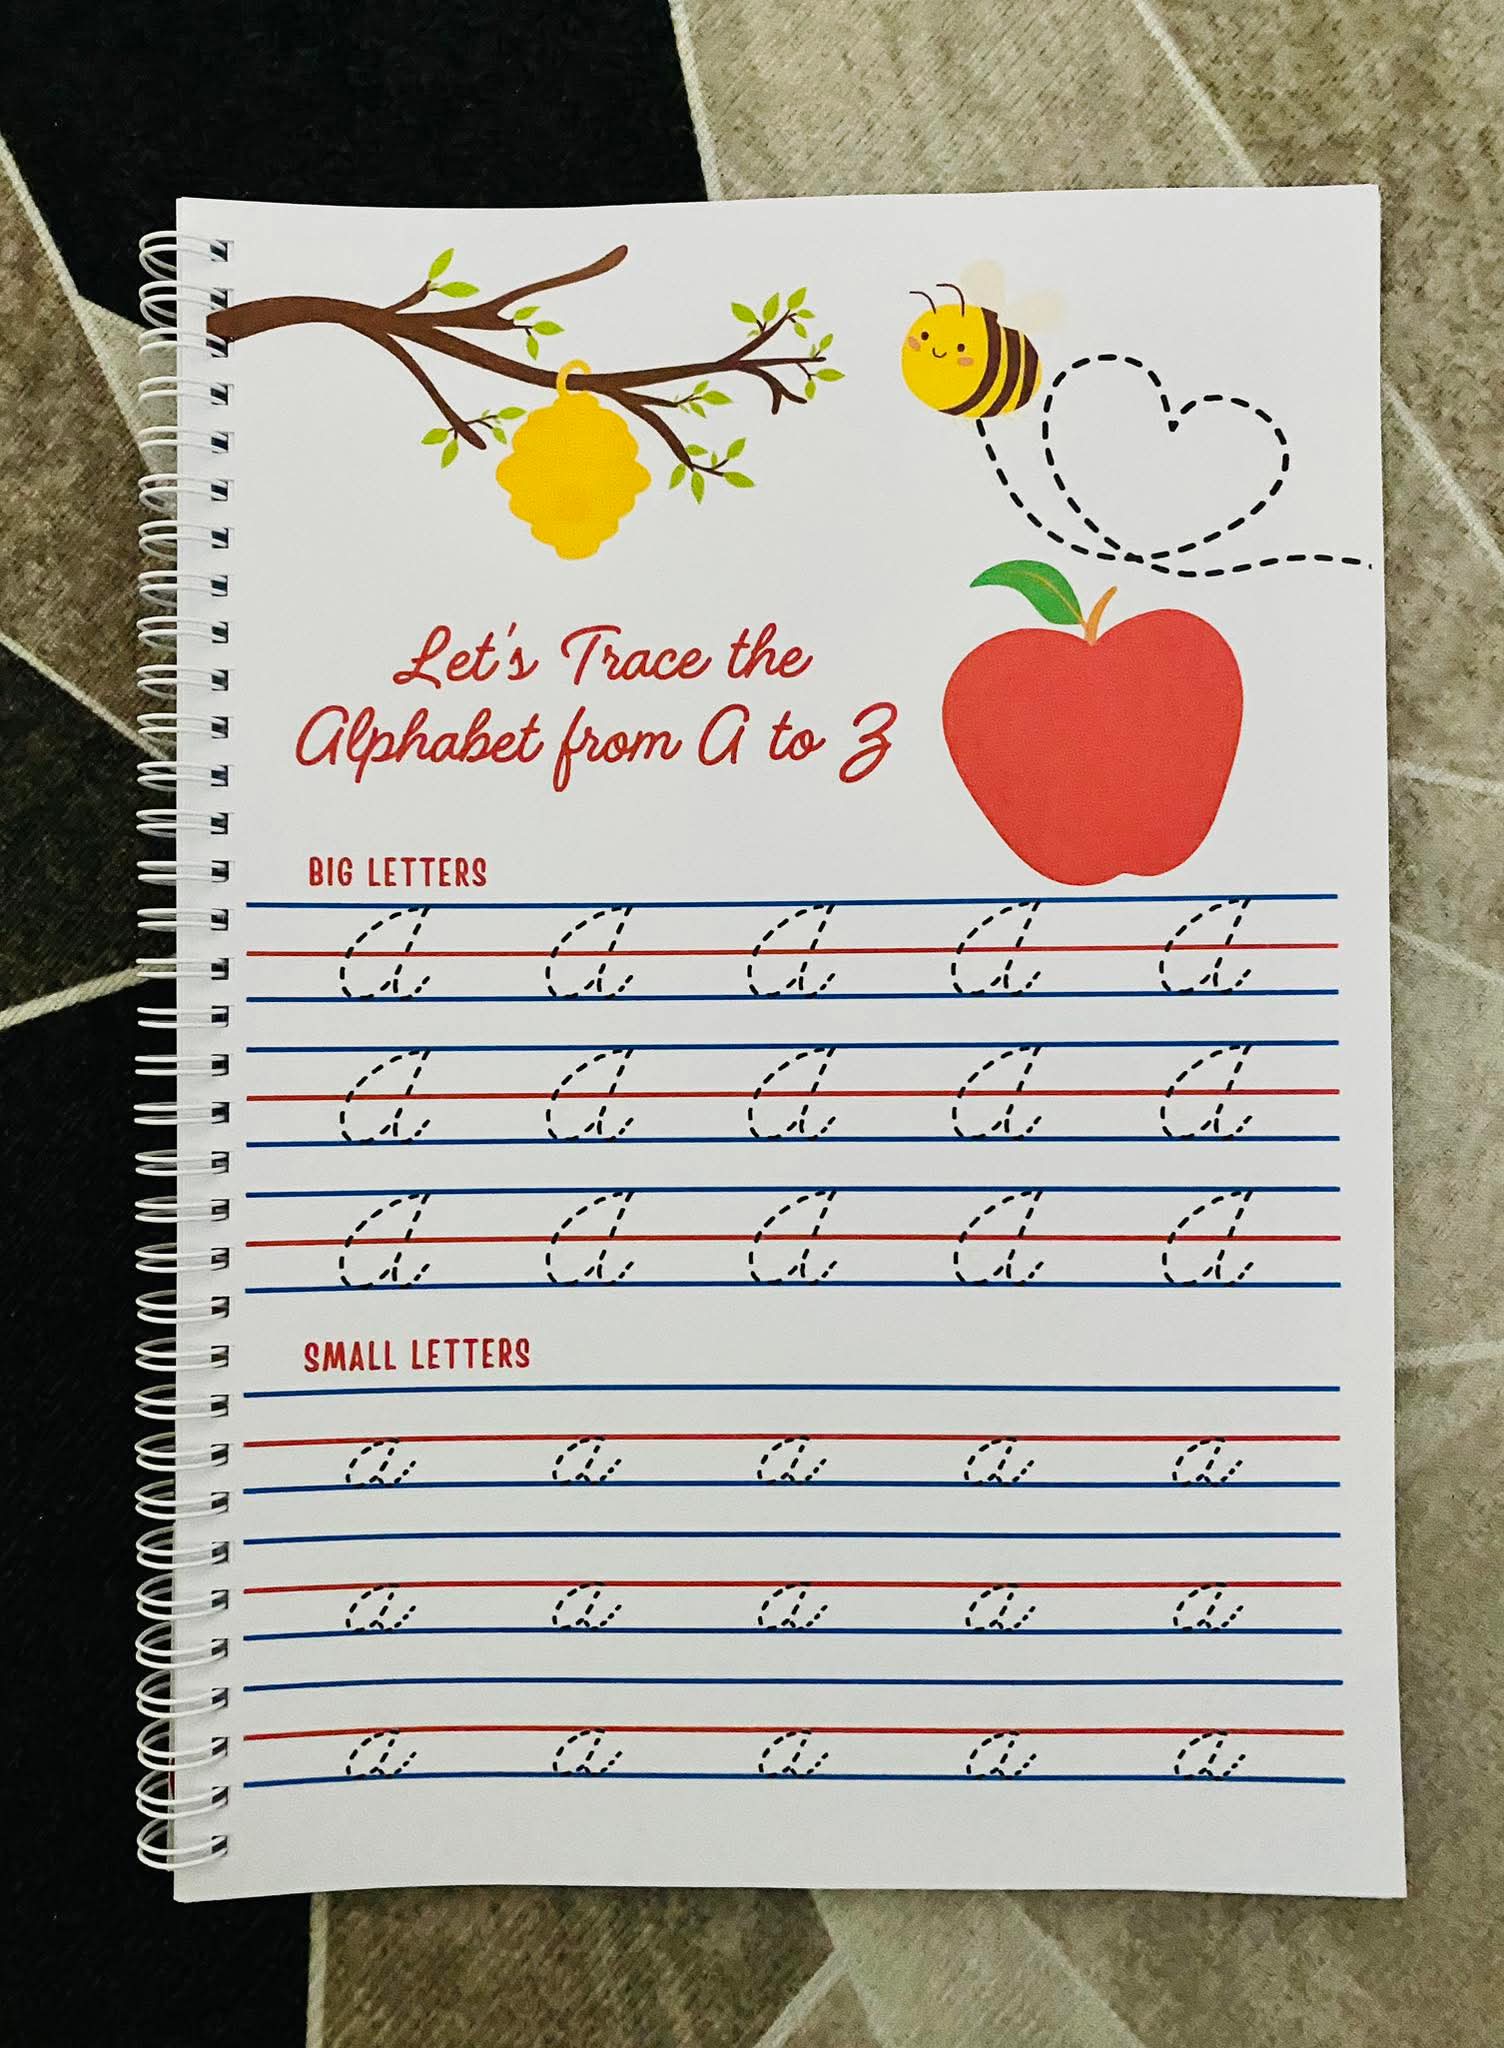 Let's Trace the
Alphabet from A to Z
BIG LETTERS
A A A A A
A A A A A
A A A A A
SMALL LETTERS
a a a a a
a a a a a
a a a a a